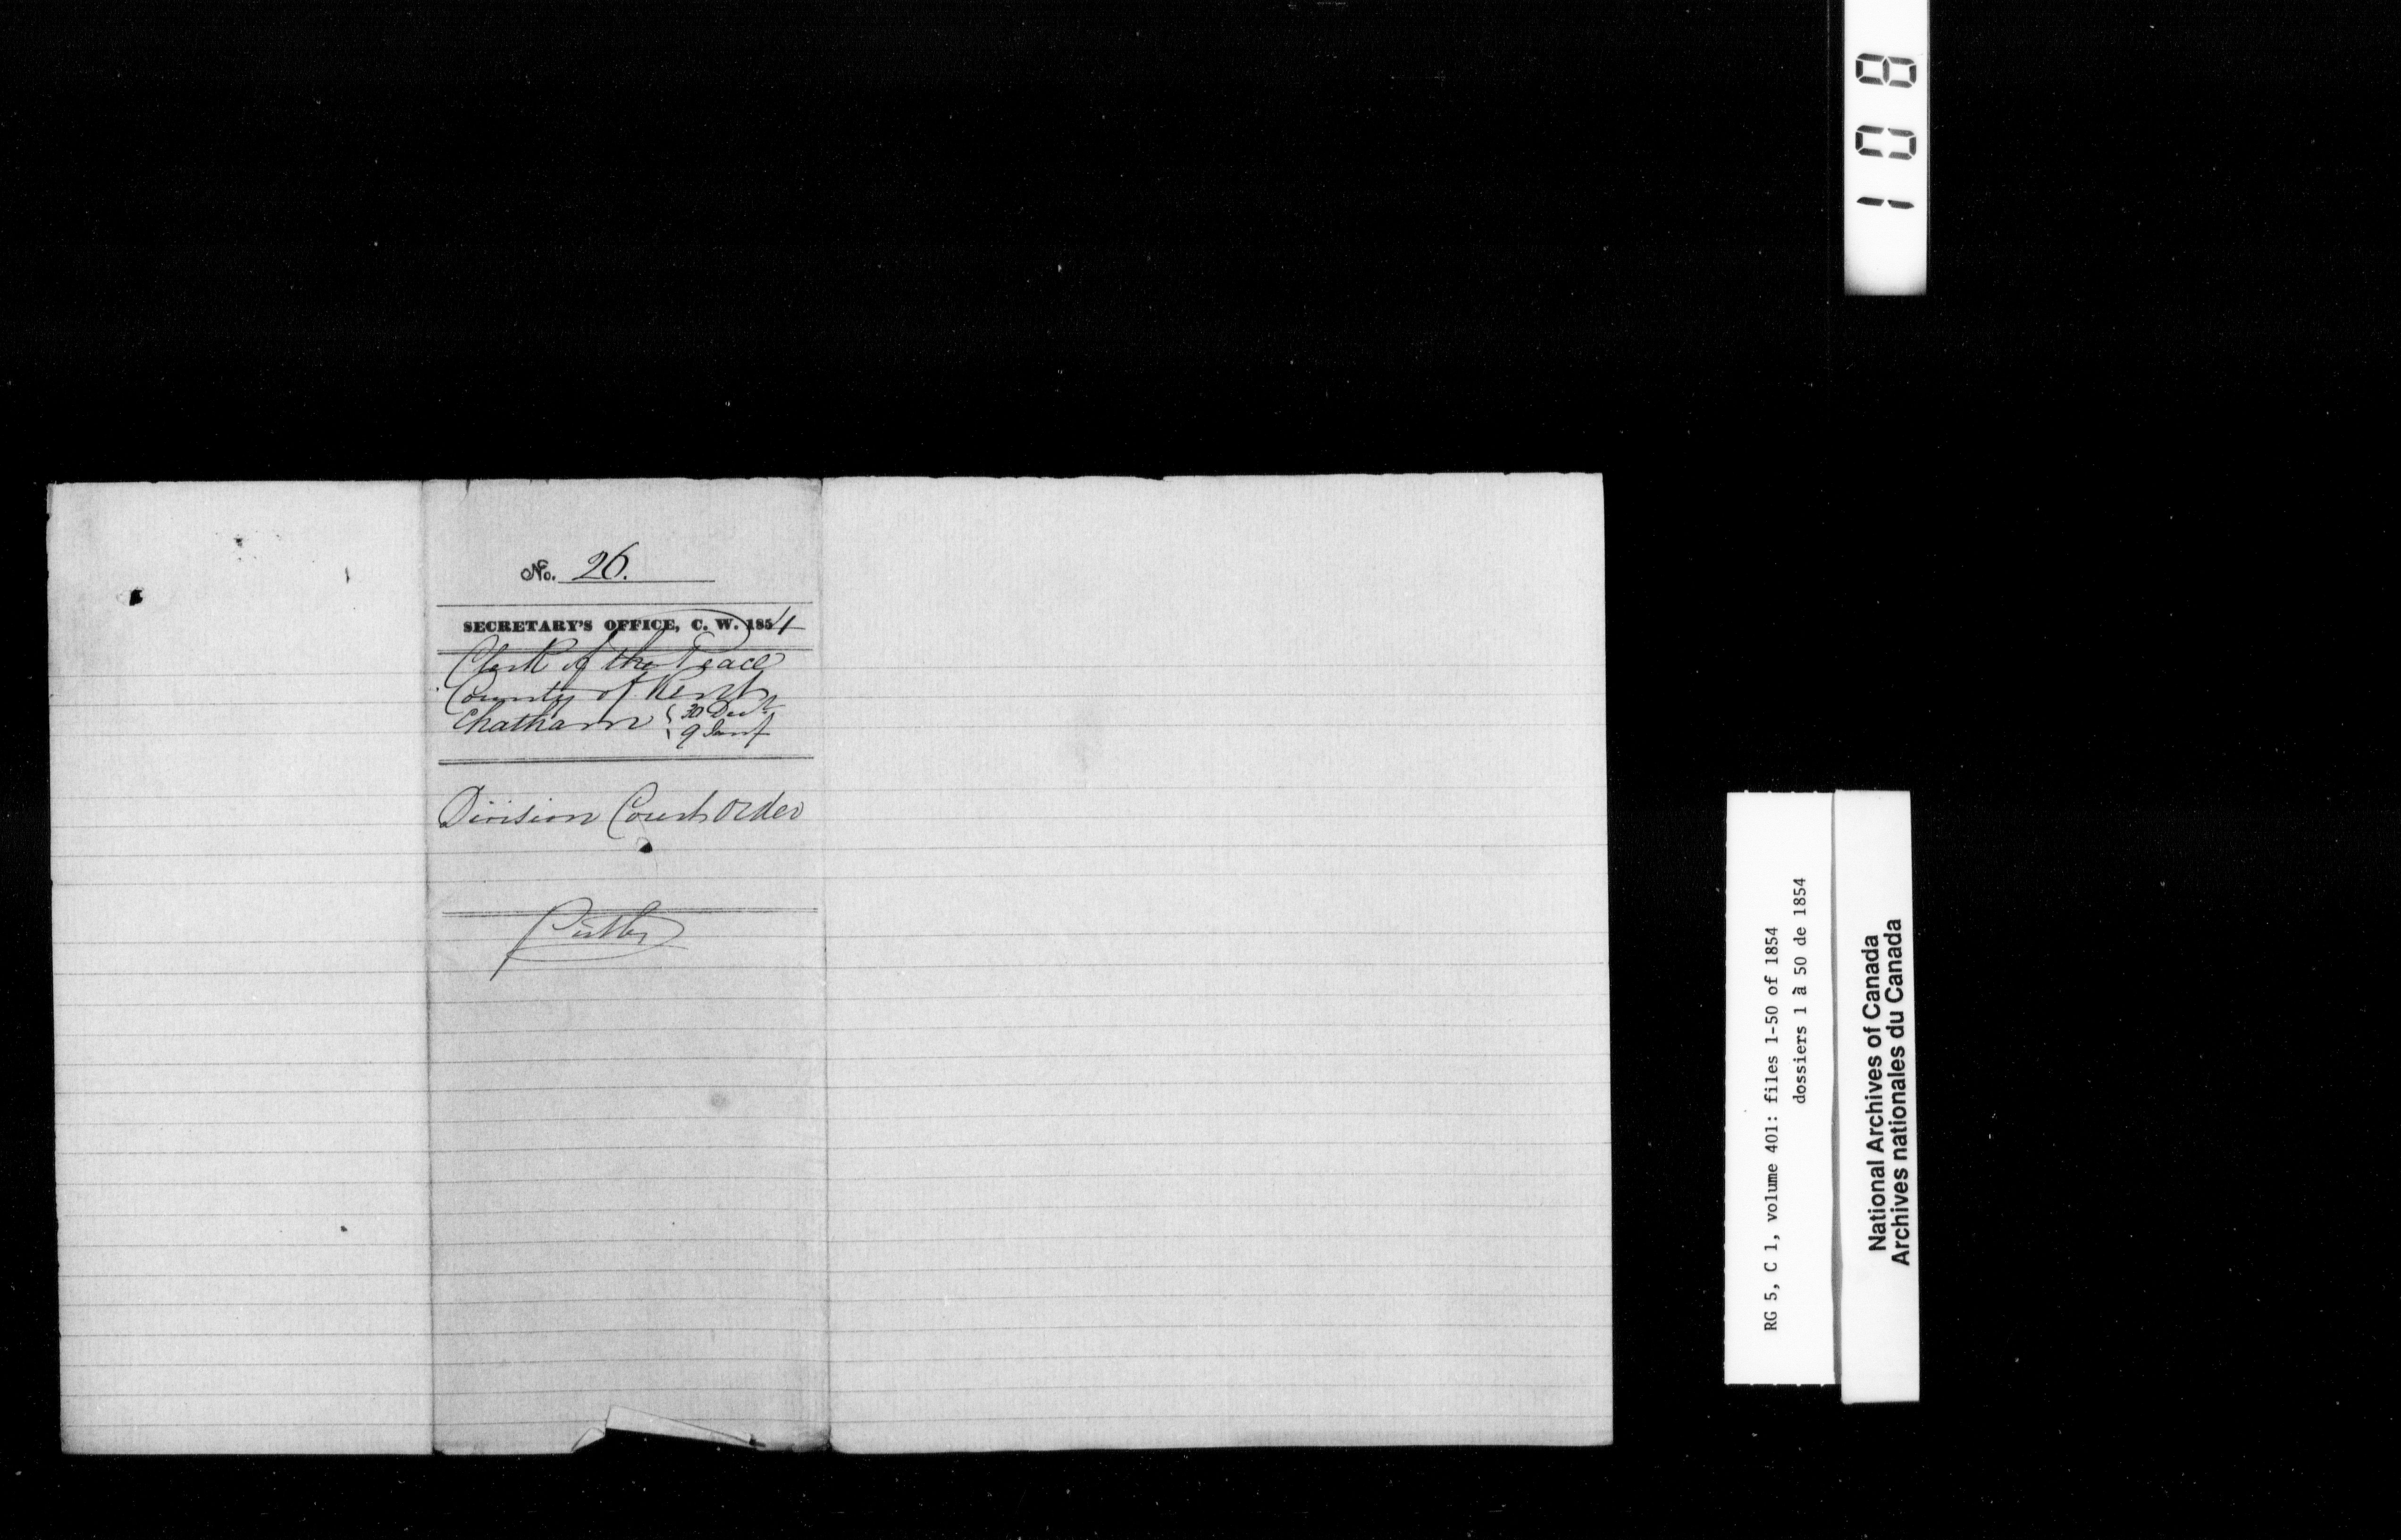 No. 26.
SECRETARY'S OFFICE, C. W. 1854
Clerk of the Peace
County of Kent
Chatham { 30 Dec
9 Jan
Division Court Order
108
RG 5, C 1, volume 401: files 1-50 of 1854
dossiers 1 à 50 de 1854
National Archives of Canada
Archives nationales du Canada